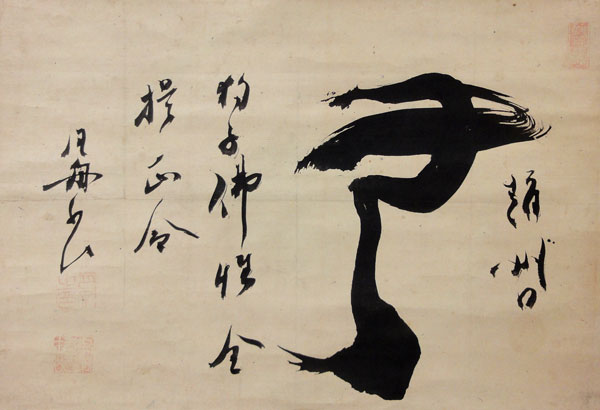 趙州曰
无
狗子佛性全
提正令
月舟